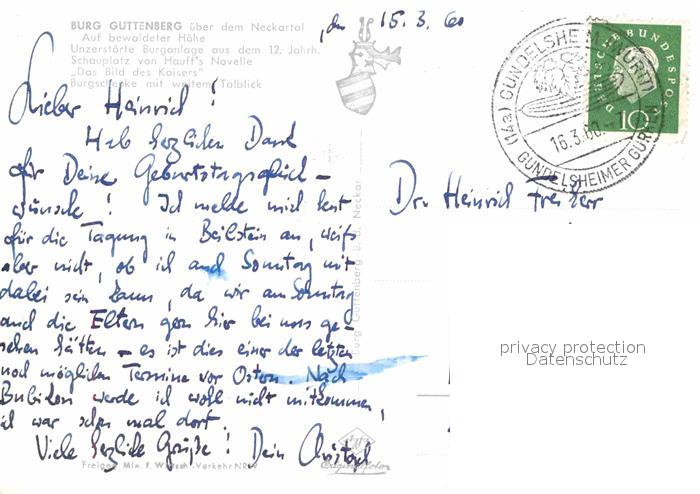 BURG GUTTENBERG über dem Neckartal
Auf bewaldeter Höhe
Unzerstörte Burganlage aus dem 12. Jahrh.
Schauplatz von Hauff's Novelle
„Das Bild des Kaisers"
Burgschenke mit weitem Talblick
, den 15.3.60
Lieber Heinrich!
Hab herzlichen Dank
für Deine Geburtstagsglück-
wünsche! Ich melde mich heut
für die Tagung in Beilstein an, weiß
aber nicht, ob ich auch Sonntag mit
dabei sein kann, da wir am Sonntag
auch die Eltern gern hier bei uns ge-
sehen hätten – es ist dies einer der letzten
noch möglichen Termine vor Ostern. Nach
werde ich wohl nicht mitkommen,
ich war schon mal dort.
Viele herzliche Grüße! Dein Christoph
Freigeg. Min. f. Wirtsch.-Verkehr NRW
Burg Guttenberg ü. d. Neckar
Dr. Heinrich Freiherr
DEUTSCHE BUNDESPOST
10
(14a) GUNDELSHEIM (WÜRTT)
16.3.60.
GUNDELSHEIMER GURKEN
privacy protection
Datenschutz